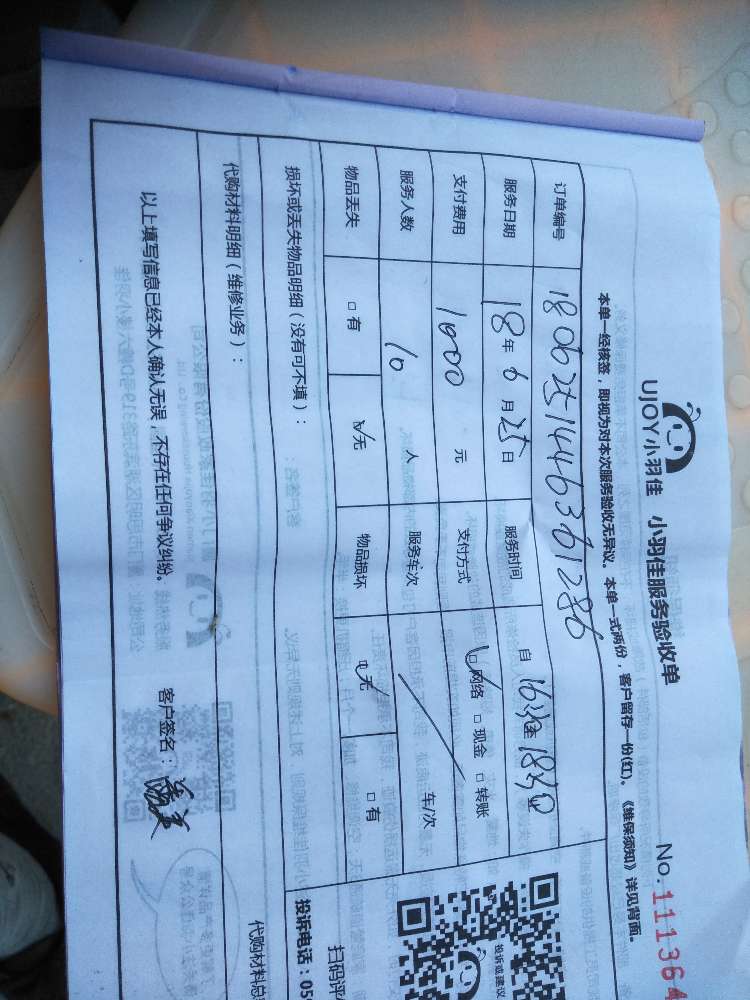 UJOY小羽佳 小羽佳服务验收单
No.:111364
本单一经核签，即视为对本次服务验收无异议。本单一式两份，客户留存一份(红)。《维保须知》详见背面。
订单编号 1806251446361286
服务日期 18年6月25日 服务时间 自
支付费用 1000 元 支付方式 网络 □现金 □转账
服务人数 10 人 服务车次 车/次
物品丢失 □有 □无 物品损坏 □无 □有
损坏或丢失物品明细（没有可不填）：
代购材料明细（维修业务）：
代购材料总
以上填写信息已经本人确认无误，不存在任何争议纠纷。 客户签名：
投诉或建议
扫码评
投诉电话：05